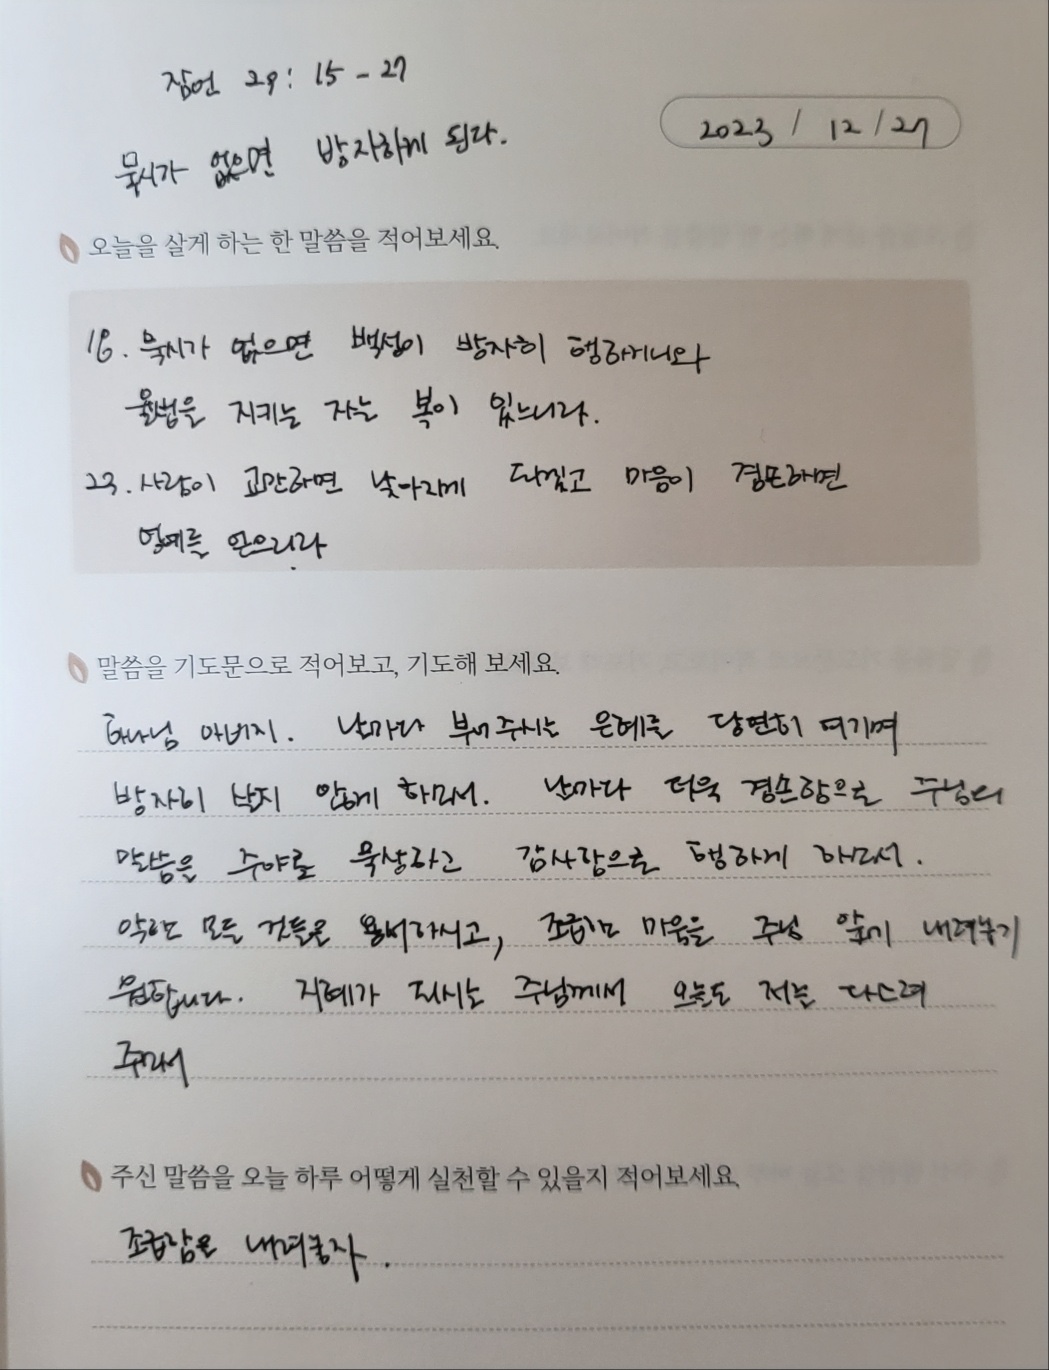 잠언 29: 15 - 27
2023 / 12 / 27
묵시가 없으면 방자하게 된다.
오늘을 살게 하는 한 말씀을 적어보세요.
18. 묵시가 없으면 백성이 방자히 행하거니와
율법을 지키는 자는 복이 있느니라.
23. 사람이 교만하면 낮아지게 되겠고 마음이 겸손하면
영예를 얻으리라.
말씀을 기도문으로 적어보고, 기도해 보세요.
하나님 아버지. 날마다 부어주시는 은혜를 당연히 여기며
방자히 받지 않게 하소서. 날마다 더욱 겸손함으로 주님의
말씀을 주야로 묵상하고 감사함으로 행하게 하소서.
악한 모든 것들을 용서하시고, 조급한 마음을 주님 앞에 내려놓기
원합니다. 지혜가 되시는 주님께서 오늘도 저를 다스려
주소서
주신 말씀을 오늘 하루 어떻게 실천할 수 있을지 적어보세요.
조급함을 내려놓자.